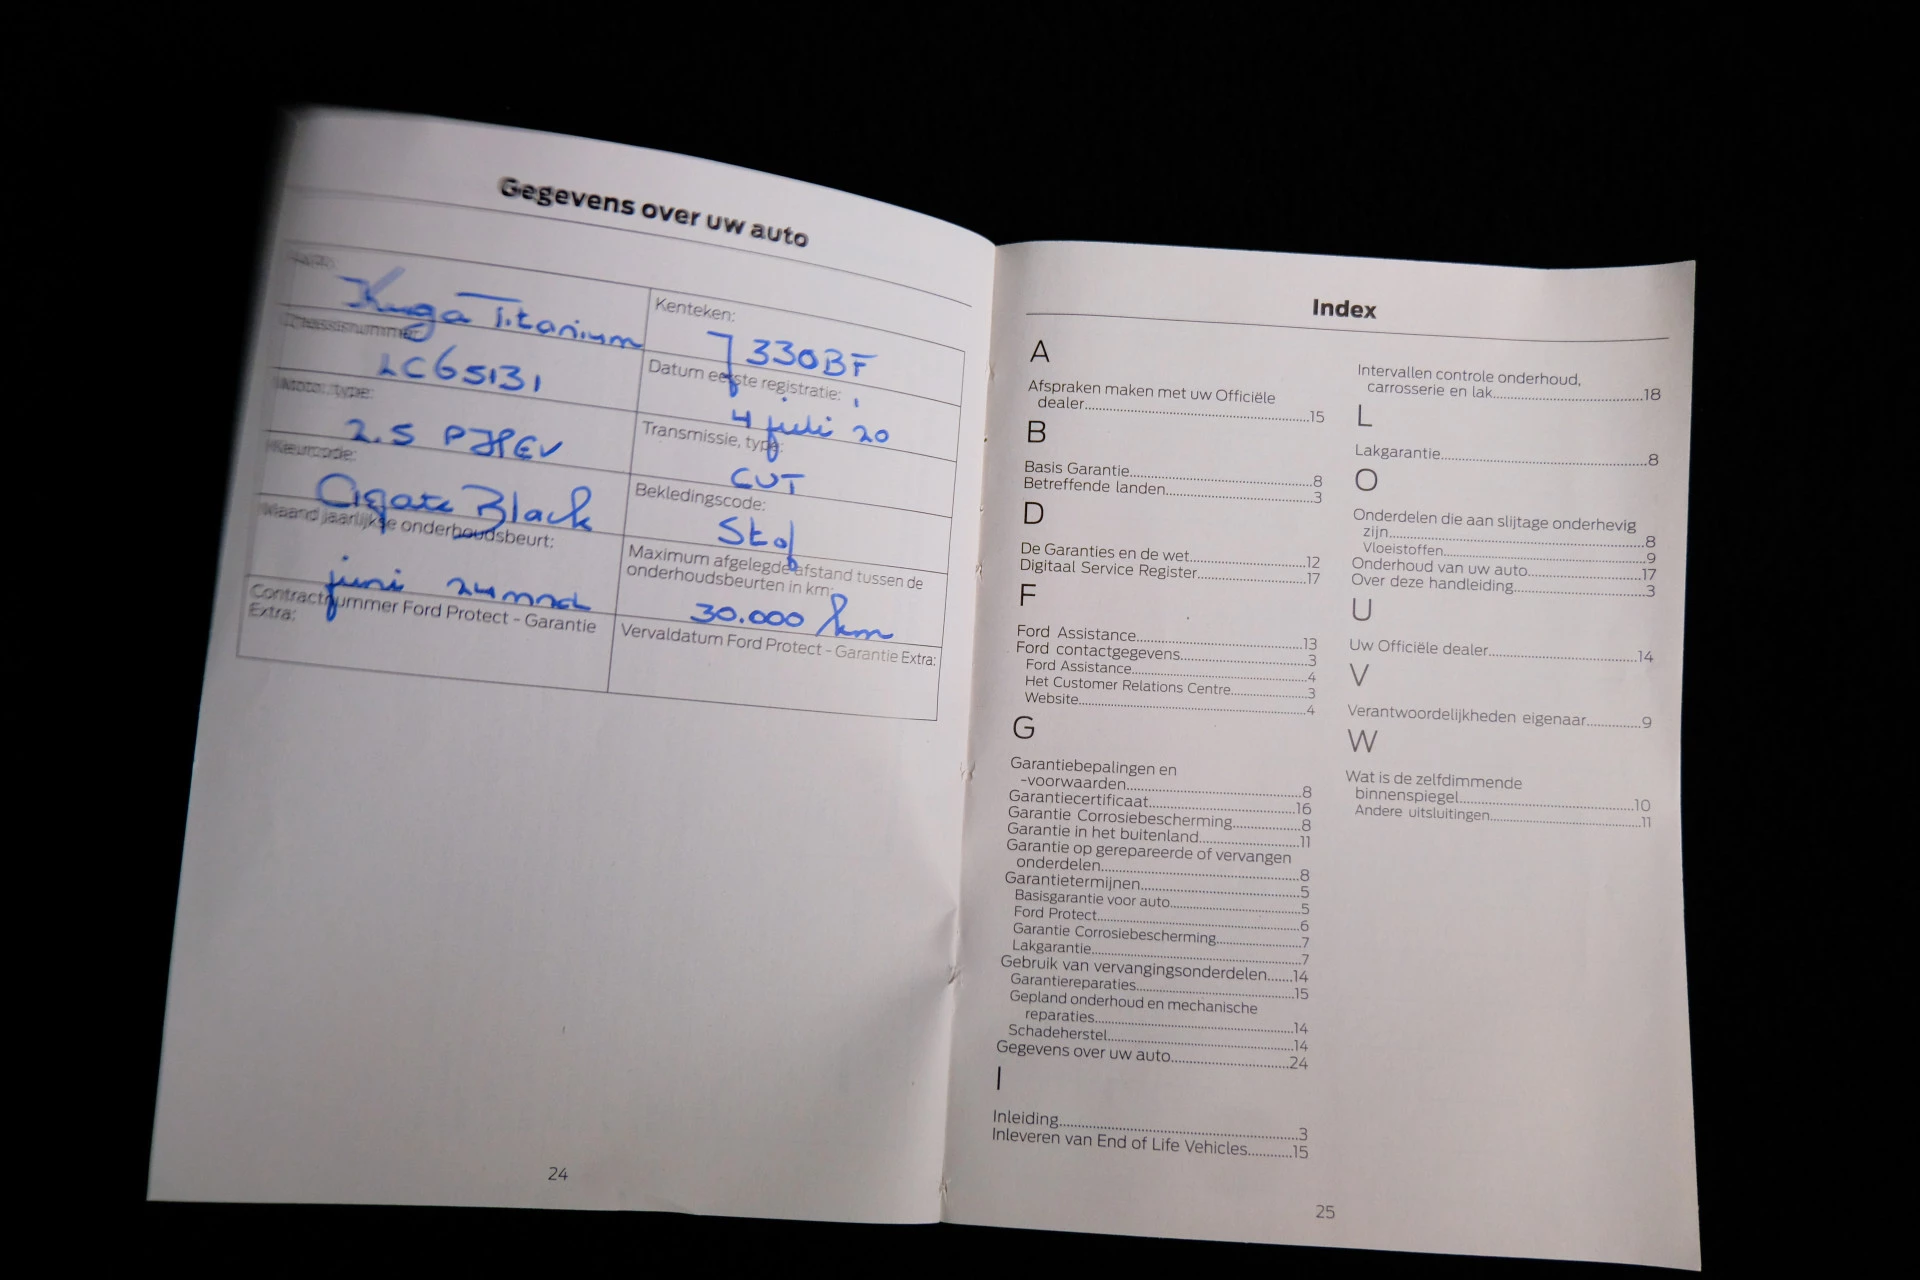 Gegevens over uw auto
Kuga Titanium
Kenteken:
7330BF
Chassisnummer:
LC65131
Datum eerste registratie:
4 juli 20
Motor, type:
2.5 PHEV
Transmissie, type:
CVT
Kleurcode:
Agate Black
Bekledingscode:
Stof
Maand jaarlijkse onderhoudsbeurt:
juni 24 mnd
Maximum afgelegde afstand tussen de
onderhoudsbeurten in km:
30.000 km
Contractnummer Ford Protect - Garantie
Extra:
Vervaldatum Ford Protect - Garantie Extra:
24
Index
A
Afspraken maken met uw Officiële
dealer...15
B
Basis Garantie...8
Betreffende landen...3
D
De Garanties en de wet...12
Digitaal Service Register...17
F
Ford Assistance...13
Ford contactgegevens...3
Ford Assistance...4
Het Customer Relations Centre...3
Website...4
G
Garantiebepalingen en
-voorwaarden...8
Garantiecertificaat...16
Garantie Corrosiebescherming...8
Garantie in het buitenland...11
Garantie op gerepareerde of vervangen
onderdelen...8
Garantietermijnen...5
Basisgarantie voor auto...5
Ford Protect...6
Garantie Corrosiebescherming...7
Lakgarantie...7
Gebruik van vervangingsonderdelen...14
Garantiereparaties...15
Gepland onderhoud en mechanische
reparaties...14
Schadeherstel...14
Gegevens over uw auto...24
I
Inleiding...3
Inleveren van End of Life Vehicles...15
Intervallen controle onderhoud,
carrosserie en lak...18
L
Lakgarantie...8
O
Onderdelen die aan slijtage onderhevig
zijn...8
Vloeistoffen...9
Onderhoud van uw auto...17
Over deze handleiding...3
U
Uw Officiële dealer...14
V
Verantwoordelijkheden eigenaar...9
W
Wat is de zelfdimmende
binnenspiegel...10
Andere uitsluitingen...11
25